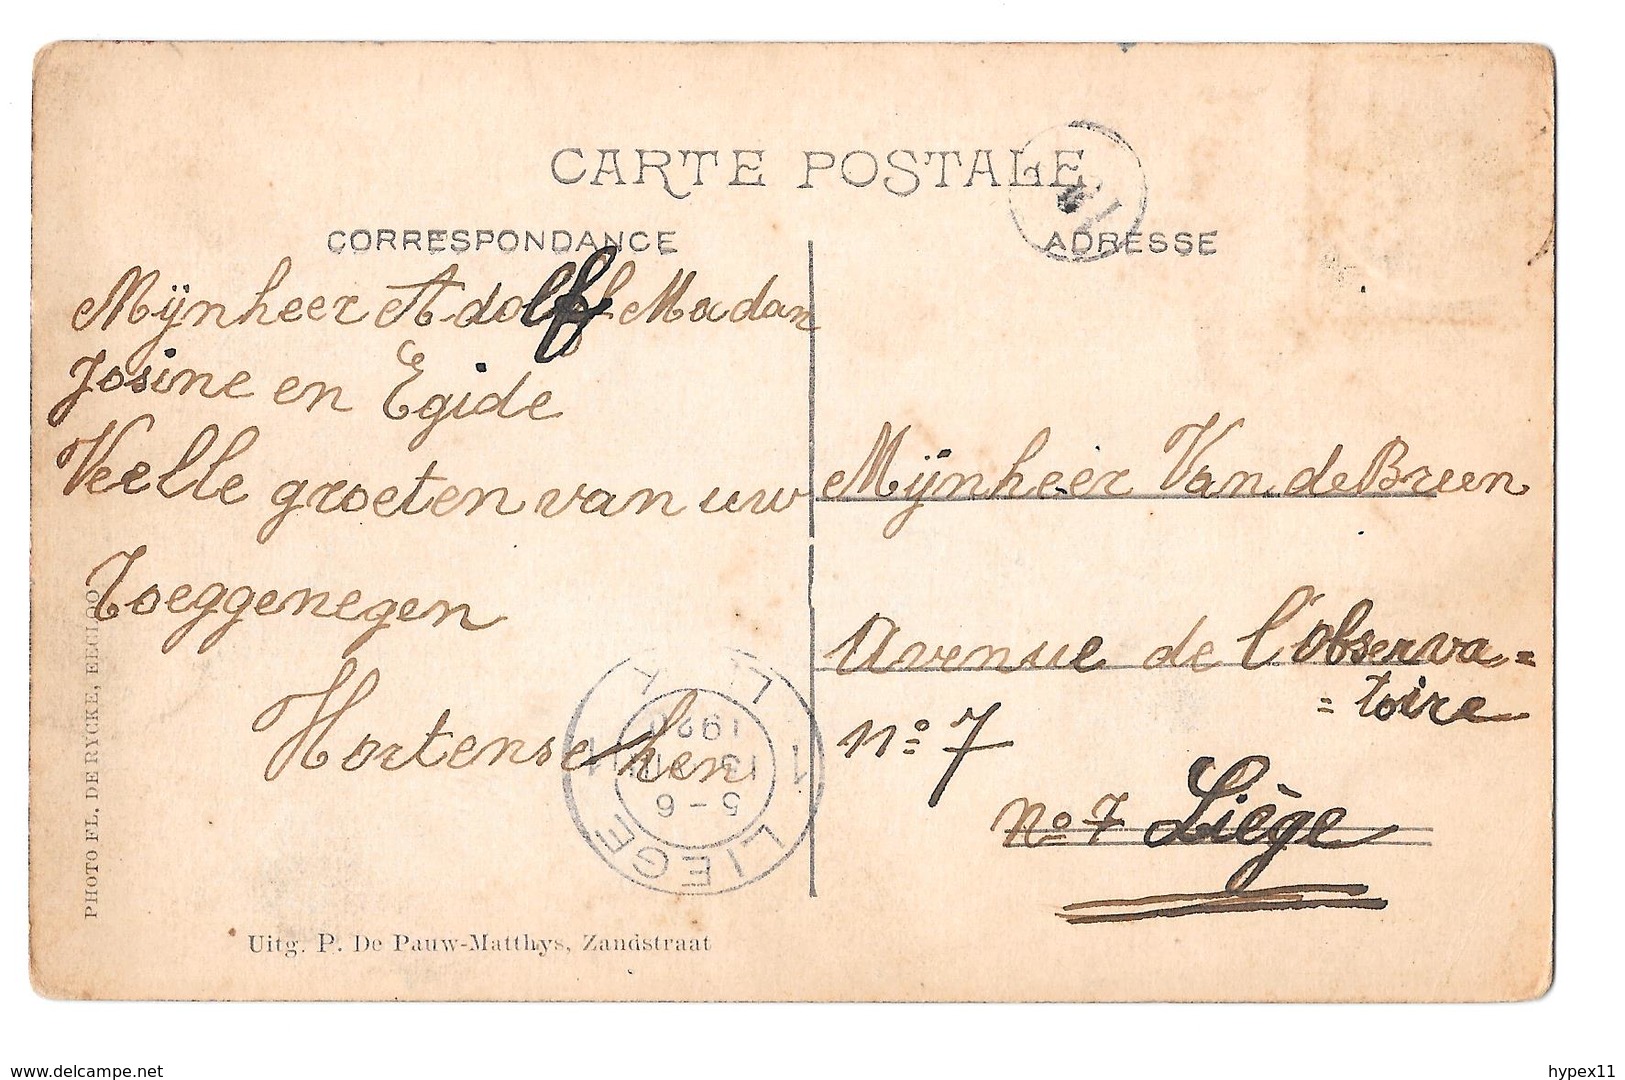 CARTE POSTALE
CORRESPONDANCE
ADRESSE
Mijnheer Adolf Madan
Josine en Egide
Veelle groeten van uw
Toeggenegen
Hortense
Mijnheer Van de Breen
Avenue de l'Observa=
=toire
n° 7
n° 7 Liège
LIEGE
1 1
5-6
13
19
PHOTO FL. DE RYCKE, EECLOO
Uitg. P. De Pauw-Matthys, Zandstraat
www.delcampe.net
hypex11